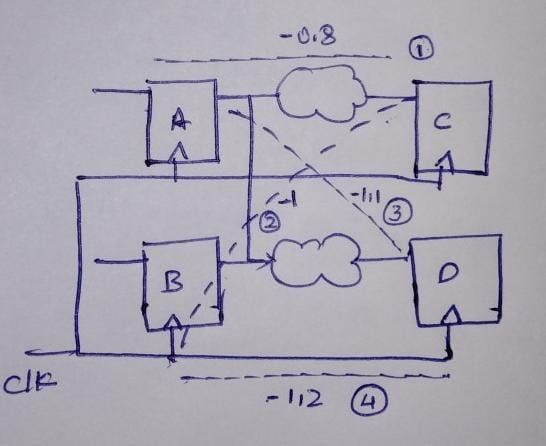 -0.8 ①
A
C
-1
②
-1,1 ③
B
D
Clk
-1,2 ④